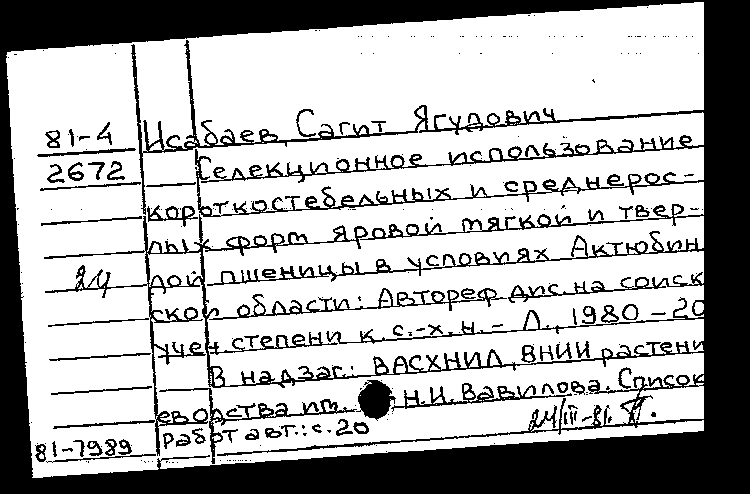 81-4 Исабаев, Сагит Ягудович
2672 Селекционное использование
короткостебельных и среднерос-
лых форм яровой мягкой и твер-
24 дой пшеницы в условиях Актюбин
ской области: Автореф дис на соиск
учен степени к. с.-х. н. - Л., 1980 - 20
В надзаг.: ВАСХНИЛ, ВНИИ растени
еводства им. Н.И. Вавилова. Список
81-7989 работ авт.: с. 20 24/III-81.